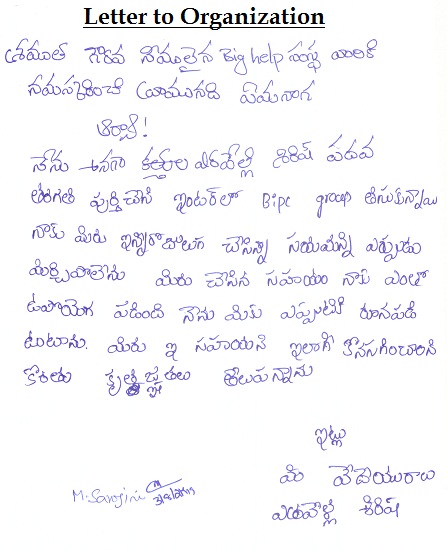 Letter to Organization
శ్రీయుత గౌరవ నీయులైన Big help సంస్థ వారికి
నమస్కరించి వ్రాయునది ఏమనగా
ఆర్యా!
నేను అనగా కత్తుల ఎరవేల్లి శిరిష్ పదవ
తరగతి పుర్తిచేసి ఇంటర్‌లో Bipc group తీసుకున్నాను
నాకు మిరు ఇన్నిరోజులుగ చేసిన్నా సయమన్ని ఎప్పుడు
మర్చిపోలేను మిరు చేసిన సహయం నాకు ఎంతో
ఉపయెగ పడింది నేను మికు ఎప్పుటికి రూనపడి
ఉంటాను. మిరు ఇ సహయన్ని ఇలాగే కొనసాగించాలని
కొరుతు కృతజ్ఞతలు తెలుపన్నాను
ఇట్లు
మి విదేయురాలు
ఎరవెల్లి శిరిష్
M. Sarojini